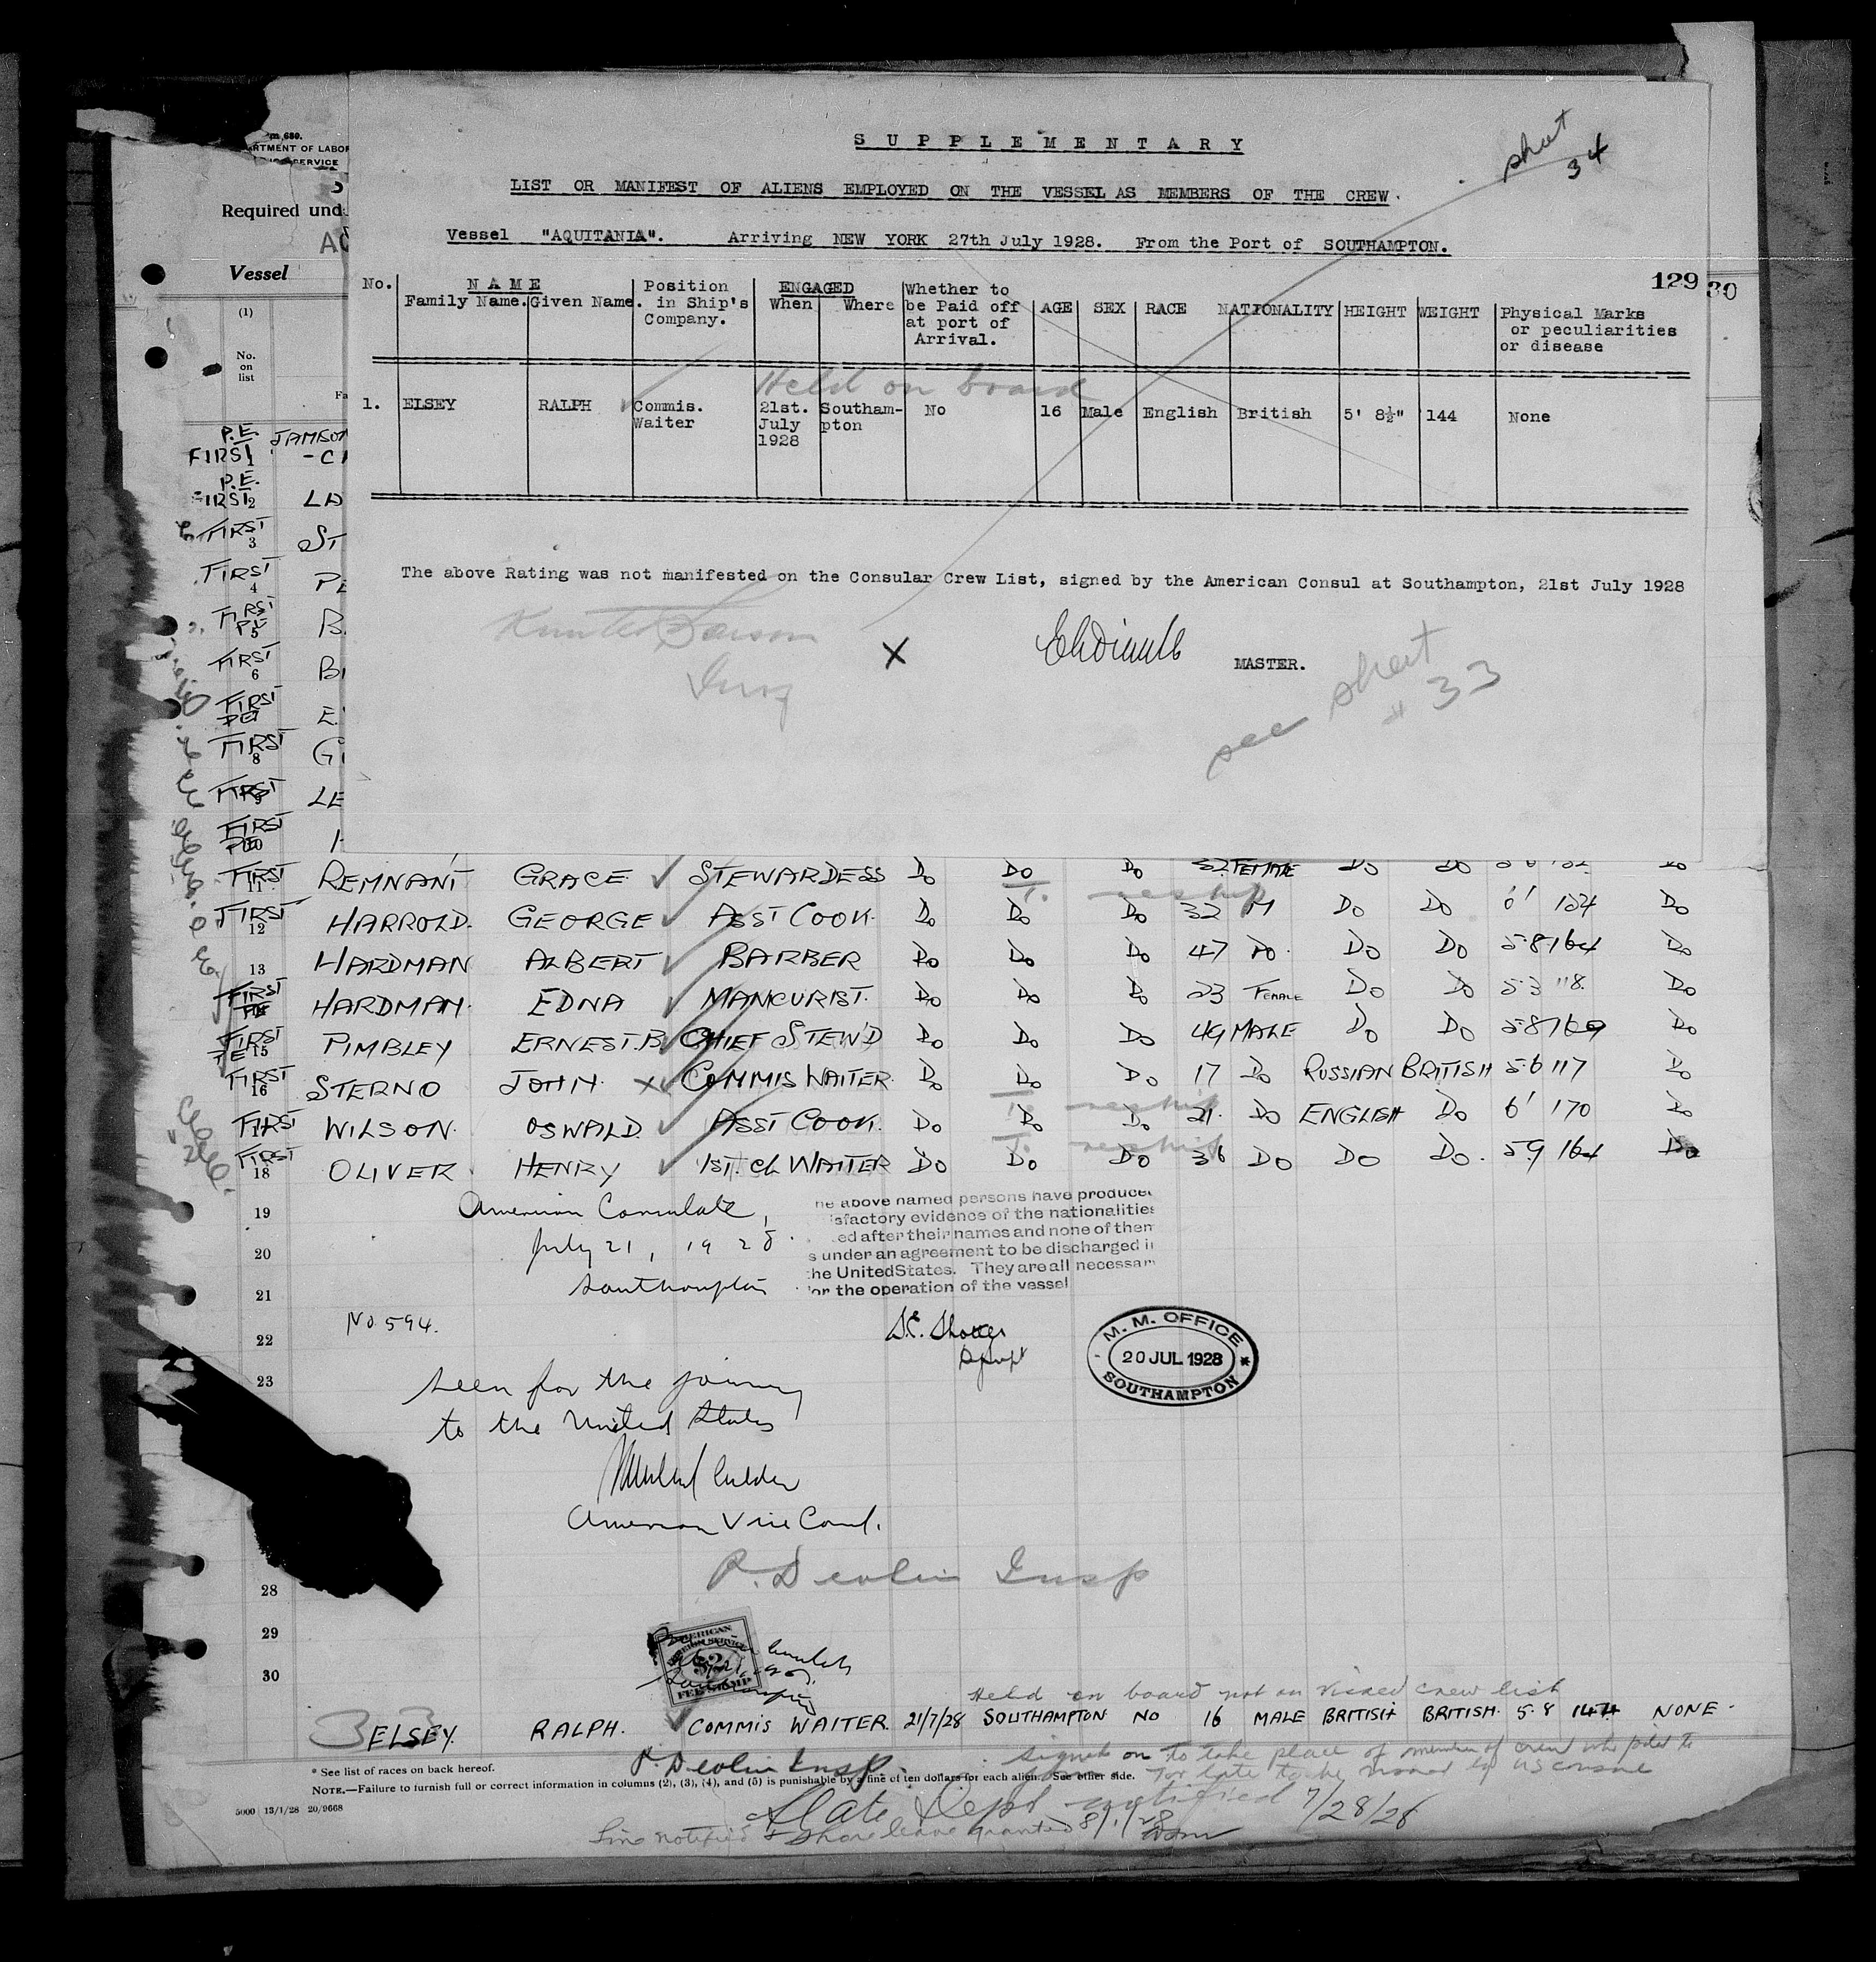 SUPPLEMENTARY
sheet
34
LIST OR MANIFEST OF ALIENS EMPLOYED ON THE VESSEL AS MEMBERS OF THE CREW.
Vessel "AQUITANIA". Arriving NEW YORK 27th July 1928. From the Port of SOUTHAMPTON.
129 30
No. NAME Family Name. Given Name. Position in Ship's Company. ENGAGED When Where Whether to be Paid off at port of Arrival. AGE SEX RACE NATIONALITY HEIGHT WEIGHT Physical Marks or peculiarities or disease
Held on board
1. ELSEY RALPH Commis. Waiter 21st. July 1928 Southam-pton No 16 Male English British 5' 8½" 144 None
The above Rating was not manifested on the Consular Crew List, signed by the American Consul at Southampton, 21st July 1928
X MASTER.
see sheet
# 33
m 680.
ARTMENT OF LABOR
SERVICE
Required und
Vessel
(1)
No.
on
list
P.E. JAMESON
FIRST 1
P.E.
FIRST 2 LA
FIRST 3 ST
FIRST 4 PE
FIRST 5 B
FIRST 6 BI
FIRST 7 E
FIRST 8 G
FIRST 9 LE
FIRST 10
FIRST 11 REMNANT GRACE STEWARDESS Do Do Do 32 FEMALE Do Do Do
FIRST 12 HARROLD. GEORGE ASST COOK. Do Do Do 32 M Do Do 6' 184 Do
13 HARDMAN ALBERT BARBER Do Do Do 47 Do. Do Do 5·8 164 Do
FIRST HARDMAN. EDNA MANCURIST. Do Do Do 23 FEMALE Do Do 5·3 118. Do
FIRST 15 PIMBLEY ERNEST.B. CHIEF STEW'D Do Do Do 49 MALE Do Do 5·8 169 Do
FIRST 16 STERNO JOHN. X COMMIS WAITER. Do Do Do 17 Do RUSSIAN BRITISH 5·6 117 Do
FIRST 17 WILSON. OSWALD. ASST COOK. Do Do Do 21. Do ENGLISH Do 6' 170 Do
FIRST 18 OLIVER HENRY 1ST. CL WAITER Do Do Do 36 Do Do Do. 5·9 164 Do
19 American Consulate,
20 July 21, 1928.
21 Southampton
he above named persons have produce
isfactory evidence of the nationalitie
ed after their names and none of them
s under an agreement to be discharged i
the United States. They are all necessar
or the operation of the vessel
22 No. 594.
M. M. OFFICE
20 JUL 1928
SOUTHAMPTON
23 Seen for the journey
to the United States
American Vice Consul.
P. Devlin Insp
28
29
30
AMERICAN
FOREIGN SERVICE
$2
FEE STAMP
Held on board not on visaed crew list
33 ELSEY. RALPH. COMMIS WAITER. 21/7/28 SOUTHAMPTON NO 16 MALE BRITISH BRITISH. 5·8 144 NONE
P. Devlin Insp.
signed on to take place of member of crew who failed to
* See list of races on back hereof.
NOTE.—Failure to furnish full or correct information in columns (2), (3), (4), and (5) is punishable by a fine of ten dollars for each alien. See other side.
5000 13/1/28 20/9668
State Dept notified 7/28/28
Line notified & shore leave granted 8/1/28